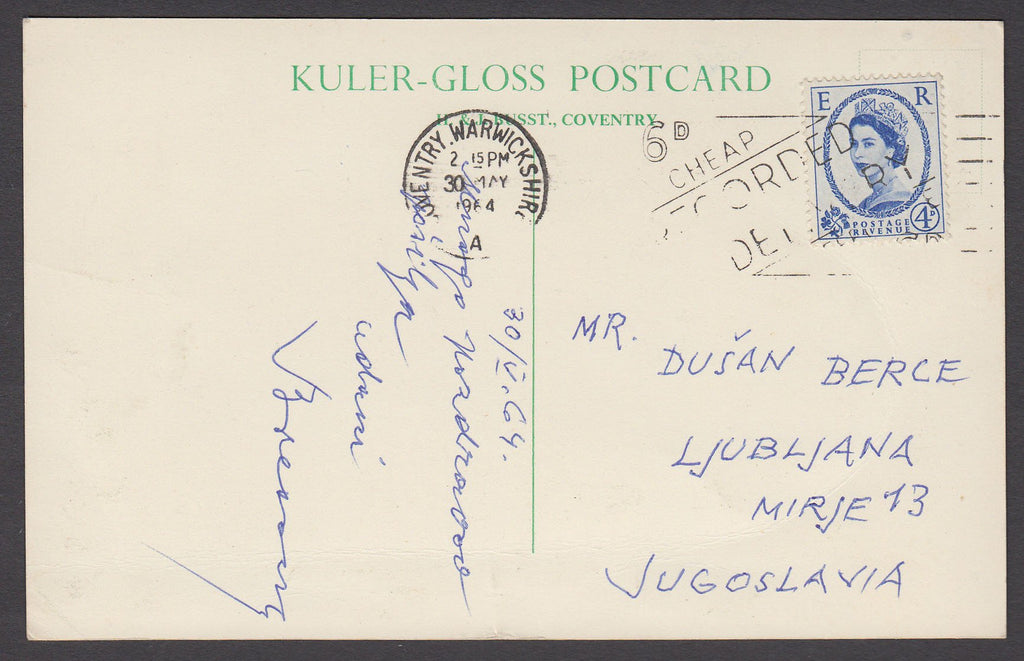 KULER-GLOSS POSTCARD
H. & J. BUSST., COVENTRY
VENTRY. WARWICKSHIR
2 15 PM
30 MAY
1964
A
6D
CHEAP
RECORDED
DEL
E R
POSTAGE
REVENUE
4D
30/V. 64.
pozdravov
pošilja
vdani
MR.
DUŠAN BERCE
LJUBLJANA
MIRJE 13
JUGOSLAVIA